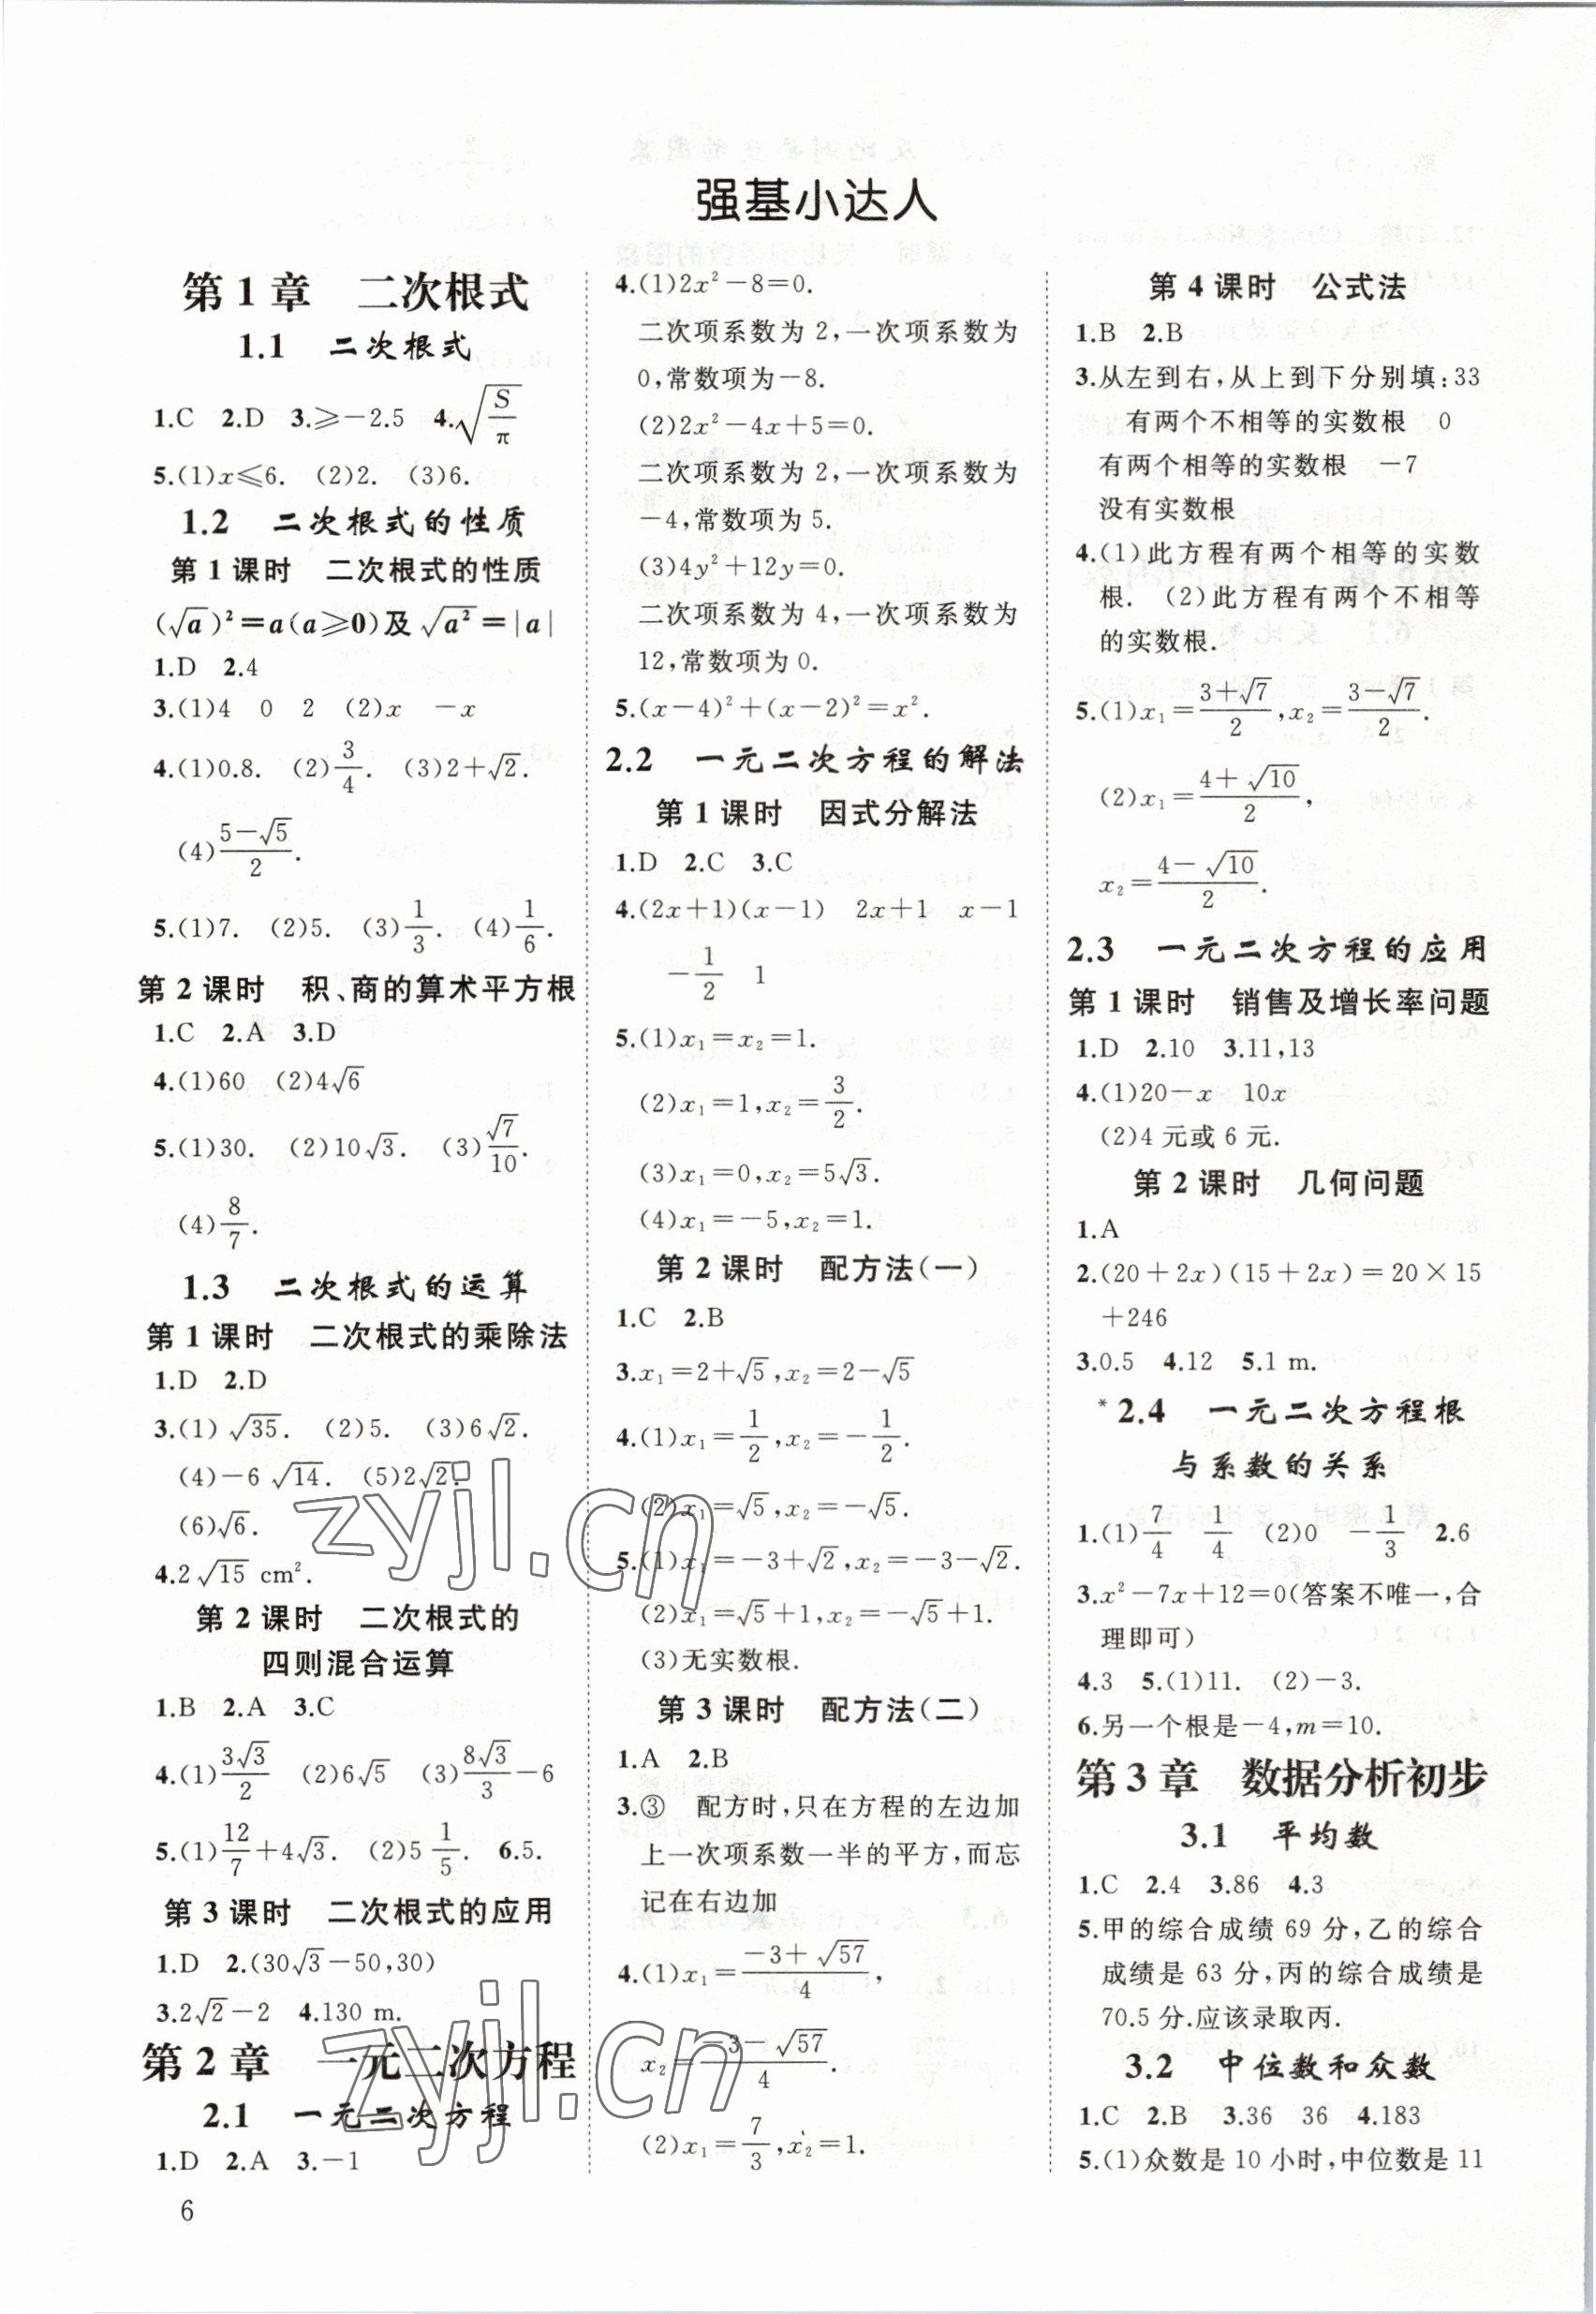 强基小达人
第1章 二次根式
1.1 二次根式
1.C 2.D 3.≥-2.5 4.√(S/π)
5.(1)x≤6. (2)2. (3)6.
1.2 二次根式的性质
第1课时 二次根式的性质
(√a)²=a(a≥0)及√a²=|a|
1.D 2.4
3.(1)4 0 2 (2)x -x
4.(1)0.8. (2)3/4. (3)2+√2.
(4)(5-√5)/2.
5.(1)7. (2)5. (3)1/3. (4)1/6.
第2课时 积、商的算术平方根
1.C 2.A 3.D
4.(1)60 (2)4√6
5.(1)30. (2)10√3. (3)√7/10.
(4)8/7.
1.3 二次根式的运算
第1课时 二次根式的乘除法
1.D 2.D
3.(1)√35. (2)5. (3)6√2.
(4)-6√14. (5)2√2.
(6)√6.
4.2√15 cm².
第2课时 二次根式的
四则混合运算
1.B 2.A 3.C
4.(1)3√3/2 (2)6√5 (3)8√3/3-6
5.(1)12/7+4√3. (2)5 1/5. 6.5.
第3课时 二次根式的应用
1.D 2.(30√3-50,30)
3.2√2-2 4.130 m.
第2章 一元二次方程
2.1 一元二次方程
1.D 2.A 3.-1
6
4.(1)2x²-8=0.
二次项系数为2,一次项系数为
0,常数项为-8.
(2)2x²-4x+5=0.
二次项系数为2,一次项系数为
-4,常数项为5.
(3)4y²+12y=0.
二次项系数为4,一次项系数为
12,常数项为0.
5.(x-4)²+(x-2)²=x².
2.2 一元二次方程的解法
第1课时 因式分解法
1.D 2.C 3.C
4.(2x+1)(x-1) 2x+1 x-1
-1/2 1
5.(1)x₁=x₂=1.
(2)x₁=1,x₂=3/2.
(3)x₁=0,x₂=5√3.
(4)x₁=-5,x₂=1.
第2课时 配方法(一)
1.C 2.B
3.x₁=2+√5,x₂=2-√5
4.(1)x₁=1/2,x₂=-1/2.
(2)x₁=√5,x₂=-√5.
5.(1)x₁=-3+√2,x₂=-3-√2.
(2)x₁=√5+1,x₂=-√5+1.
(3)无实数根.
第3课时 配方法(二)
1.A 2.B
3.③ 配方时,只在方程的左边加
上一次项系数一半的平方,而忘
记在右边加
4.(1)x₁=(-3+√57)/4,
x₂=(-3-√57)/4.
(2)x₁=7/3,x₂=1.
第4课时 公式法
1.B 2.B
3.从左到右,从上到下分别填:33
有两个不相等的实数根 0
有两个相等的实数根 -7
没有实数根
4.(1)此方程有两个相等的实数
根. (2)此方程有两个不相等
的实数根.
5.(1)x₁=(3+√7)/2,x₂=(3-√7)/2.
(2)x₁=(4+√10)/2,
x₂=(4-√10)/2.
2.3 一元二次方程的应用
第1课时 销售及增长率问题
1.D 2.10 3.11,13
4.(1)20-x 10x
(2)4元或6元.
第2课时 几何问题
1.A
2.(20+2x)(15+2x)=20×15
+246
3.0.5 4.12 5.1 m.
*2.4 一元二次方程根
与系数的关系
1.(1)7/4 1/4 (2)0 -1/3 2.6
3.x²-7x+12=0(答案不唯一,合
理即可)
4.3 5.(1)11. (2)-3.
6.另一个根是-4,m=10.
第3章 数据分析初步
3.1 平均数
1.C 2.4 3.86 4.3
5.甲的综合成绩69分,乙的综合
成绩是63分,丙的综合成绩是
70.5分.应该录取丙.
3.2 中位数和众数
1.C 2.B 3.36 36 4.183
5.(1)众数是10小时,中位数是11
zyjl.cn
zyjl.cn